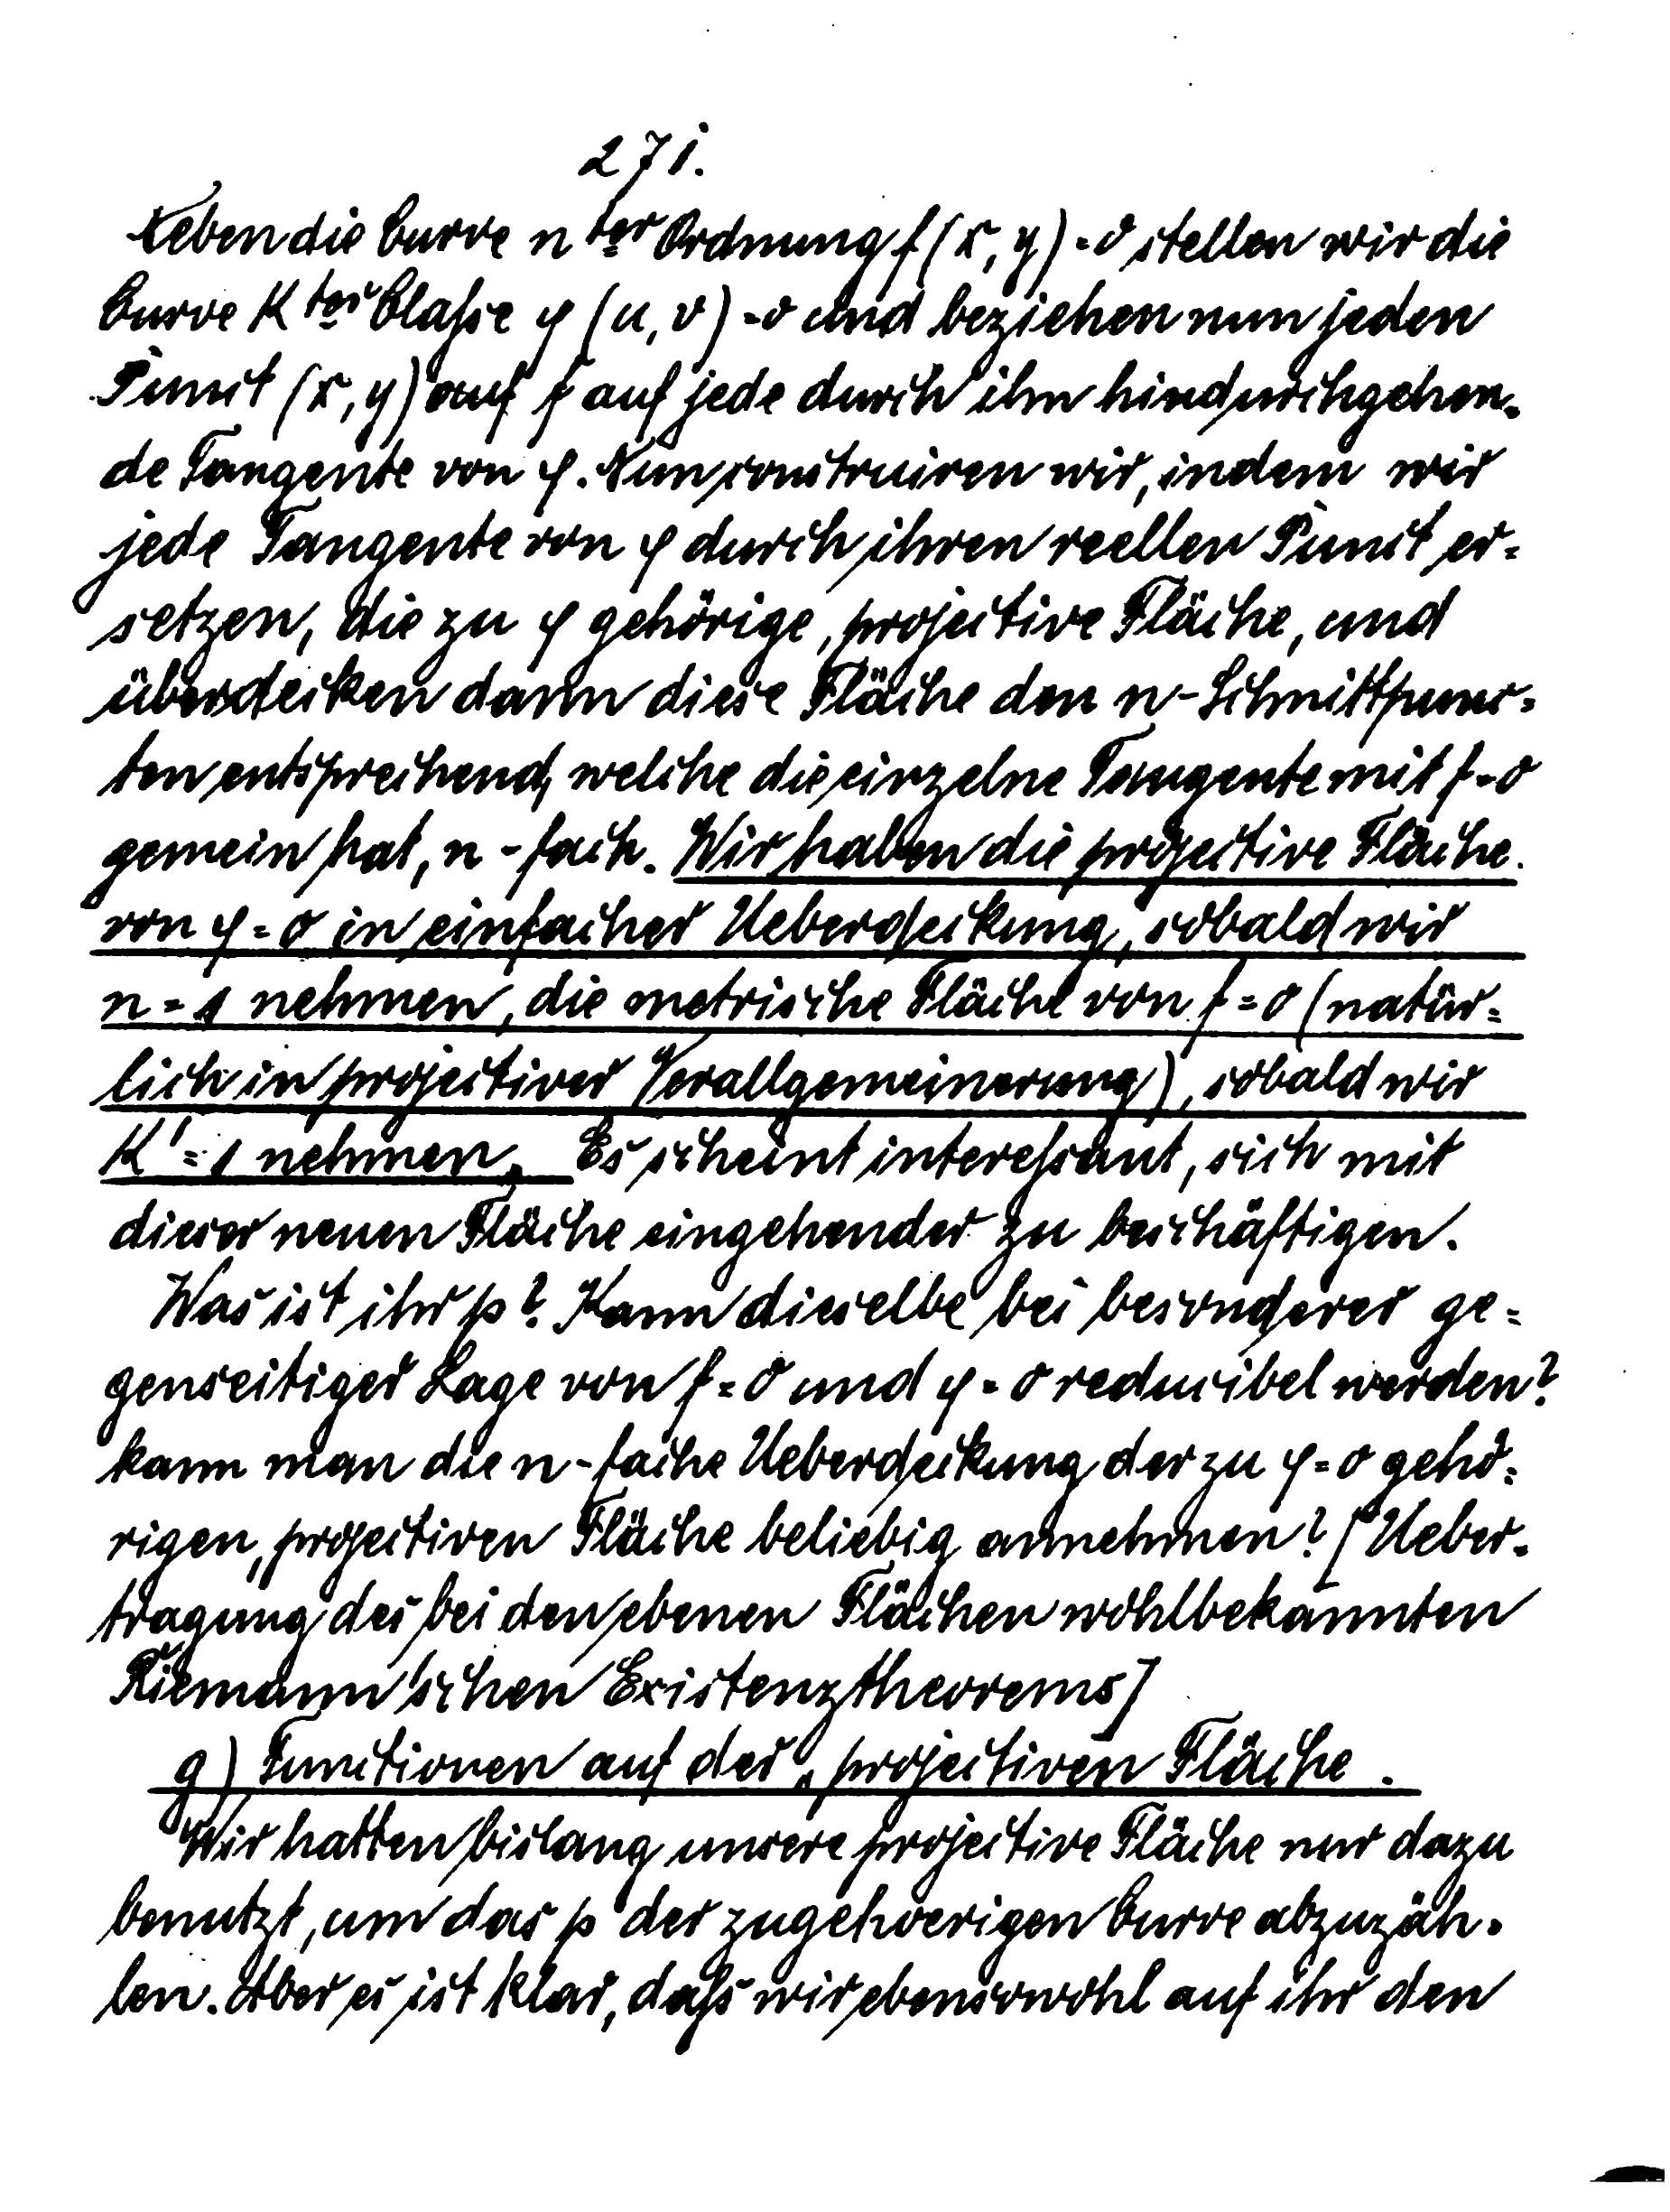 271.
Neben die Curve n ter Ordnung f(x, y) = 0 stellen wir die
Curve K ter Classe φ (u, v) = 0 und beziehen nun jeden
Punct (x, y) auf f auf jede durch ihn hindurchgehen=
de Tangente von φ. Nun construiren wir, indem wir
jede Tangente von φ durch ihren reellen Punct er=
setzen, die zu φ gehörige, projective Fläche, und
überdecken dann diese Fläche den n-Schnittpunc=
ten entsprechend, welche die einzelne Tangente mit f = 0
gemein hat, n-fach. Wir haben die projective Fläche
von φ = 0 in einfacher Ueberdeckung, sobald wir
n = 1 nehmen, die metrische Fläche von f = 0 (natür=
lich in projectiver Verallgemeinerung), sobald wir
K' = 1 nehmen. Es scheint interessant, sich mit
dieser neuen Fläche eingehender zu beschäftigen.
Was ist ihr p? Kann dieselbe bei besonderer ge=
genseitiger Lage von f = 0 und φ = 0 reducibel werden?
kann man die n-fache Ueberdeckung der zu φ = 0 gehö=
rigen, projectiven Fläche beliebig annehmen? [Ueber=
tragung des bei den ebenen Flächen wohlbekannten
Riemann'schen Existenztheorems]
g) Functionen auf der projectiven Fläche.
Wir hatten bislang unsere projective Fläche nur dazu
benutzt, um das p der zugehoerigen Curve abzuzäh=
len. Aber es ist klar, dass wir ebensowohl auf ihr den